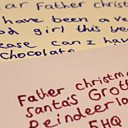 ar Father Christ
have been a ve
od girl this ye
ease can I hav
Chocolate
Father christm
santa's Grott
Reindeer la
5HQ